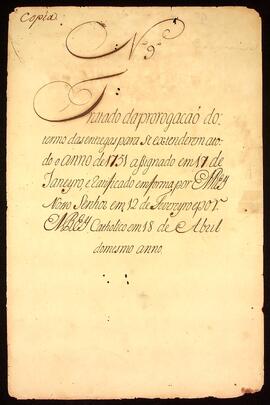 Copia
N.º 9º
Tratado da prorogacaõ do
termo das entregas para se extenderem a to
do o anno de 1751 assignado em 17 de
Janeyro, e Ratificado em forma por ElRey
Nosso Senhor em 12 de Fevereyro e por
ElRey Catholico em 18 de Abril
do mesmo anno.